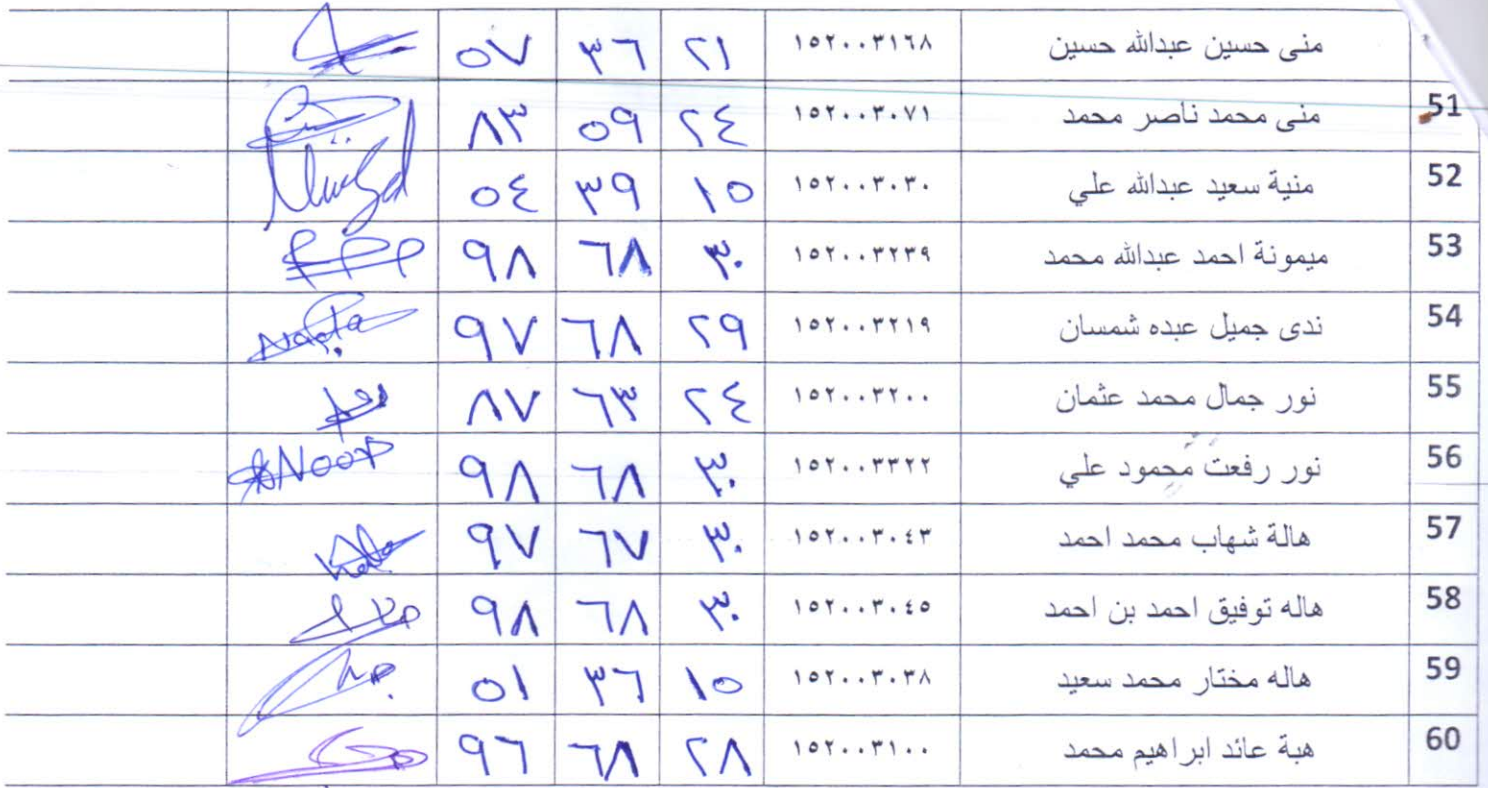 منى حسين عبدالله حسين ١٥٢٠٠٣١٦٨ ٢١ ٣٦ ٥٧
51 منى محمد ناصر محمد ١٥٢٠٠٣٠٧١ ٢٤ ٥٩ ٨٣
52 منية سعيد عبدالله علي ١٥٢٠٠٣٠٣٠ ١٥ ٣٩ ٥٤
53 ميمونة احمد عبدالله محمد ١٥٢٠٠٣٢٣٩ ٣٠ ٦٨ ٩٨
54 ندى جميل عبده شمسان ١٥٢٠٠٣٢١٩ ٢٩ ٦٨ ٩٧
55 نور جمال محمد عثمان ١٥٢٠٠٣٢٠٠ ٢٤ ٦٣ ٨٧
56 نور رفعت محمود علي ١٥٢٠٠٣٣٢٢ ٣٠ ٦٨ ٩٨ Noor
57 هالة شهاب محمد احمد ١٥٢٠٠٣٠٤٣ ٣٠ ٦٧ ٩٧
58 هاله توفيق احمد بن احمد ١٥٢٠٠٣٠٤٥ ٣٠ ٦٨ ٩٨
59 هاله مختار محمد سعيد ١٥٢٠٠٣٠٣٨ ١٥ ٣٦ ٥١
60 هبة عائد ابراهيم محمد ١٥٢٠٠٣١٠٠ ٢٨ ٦٨ ٩٦